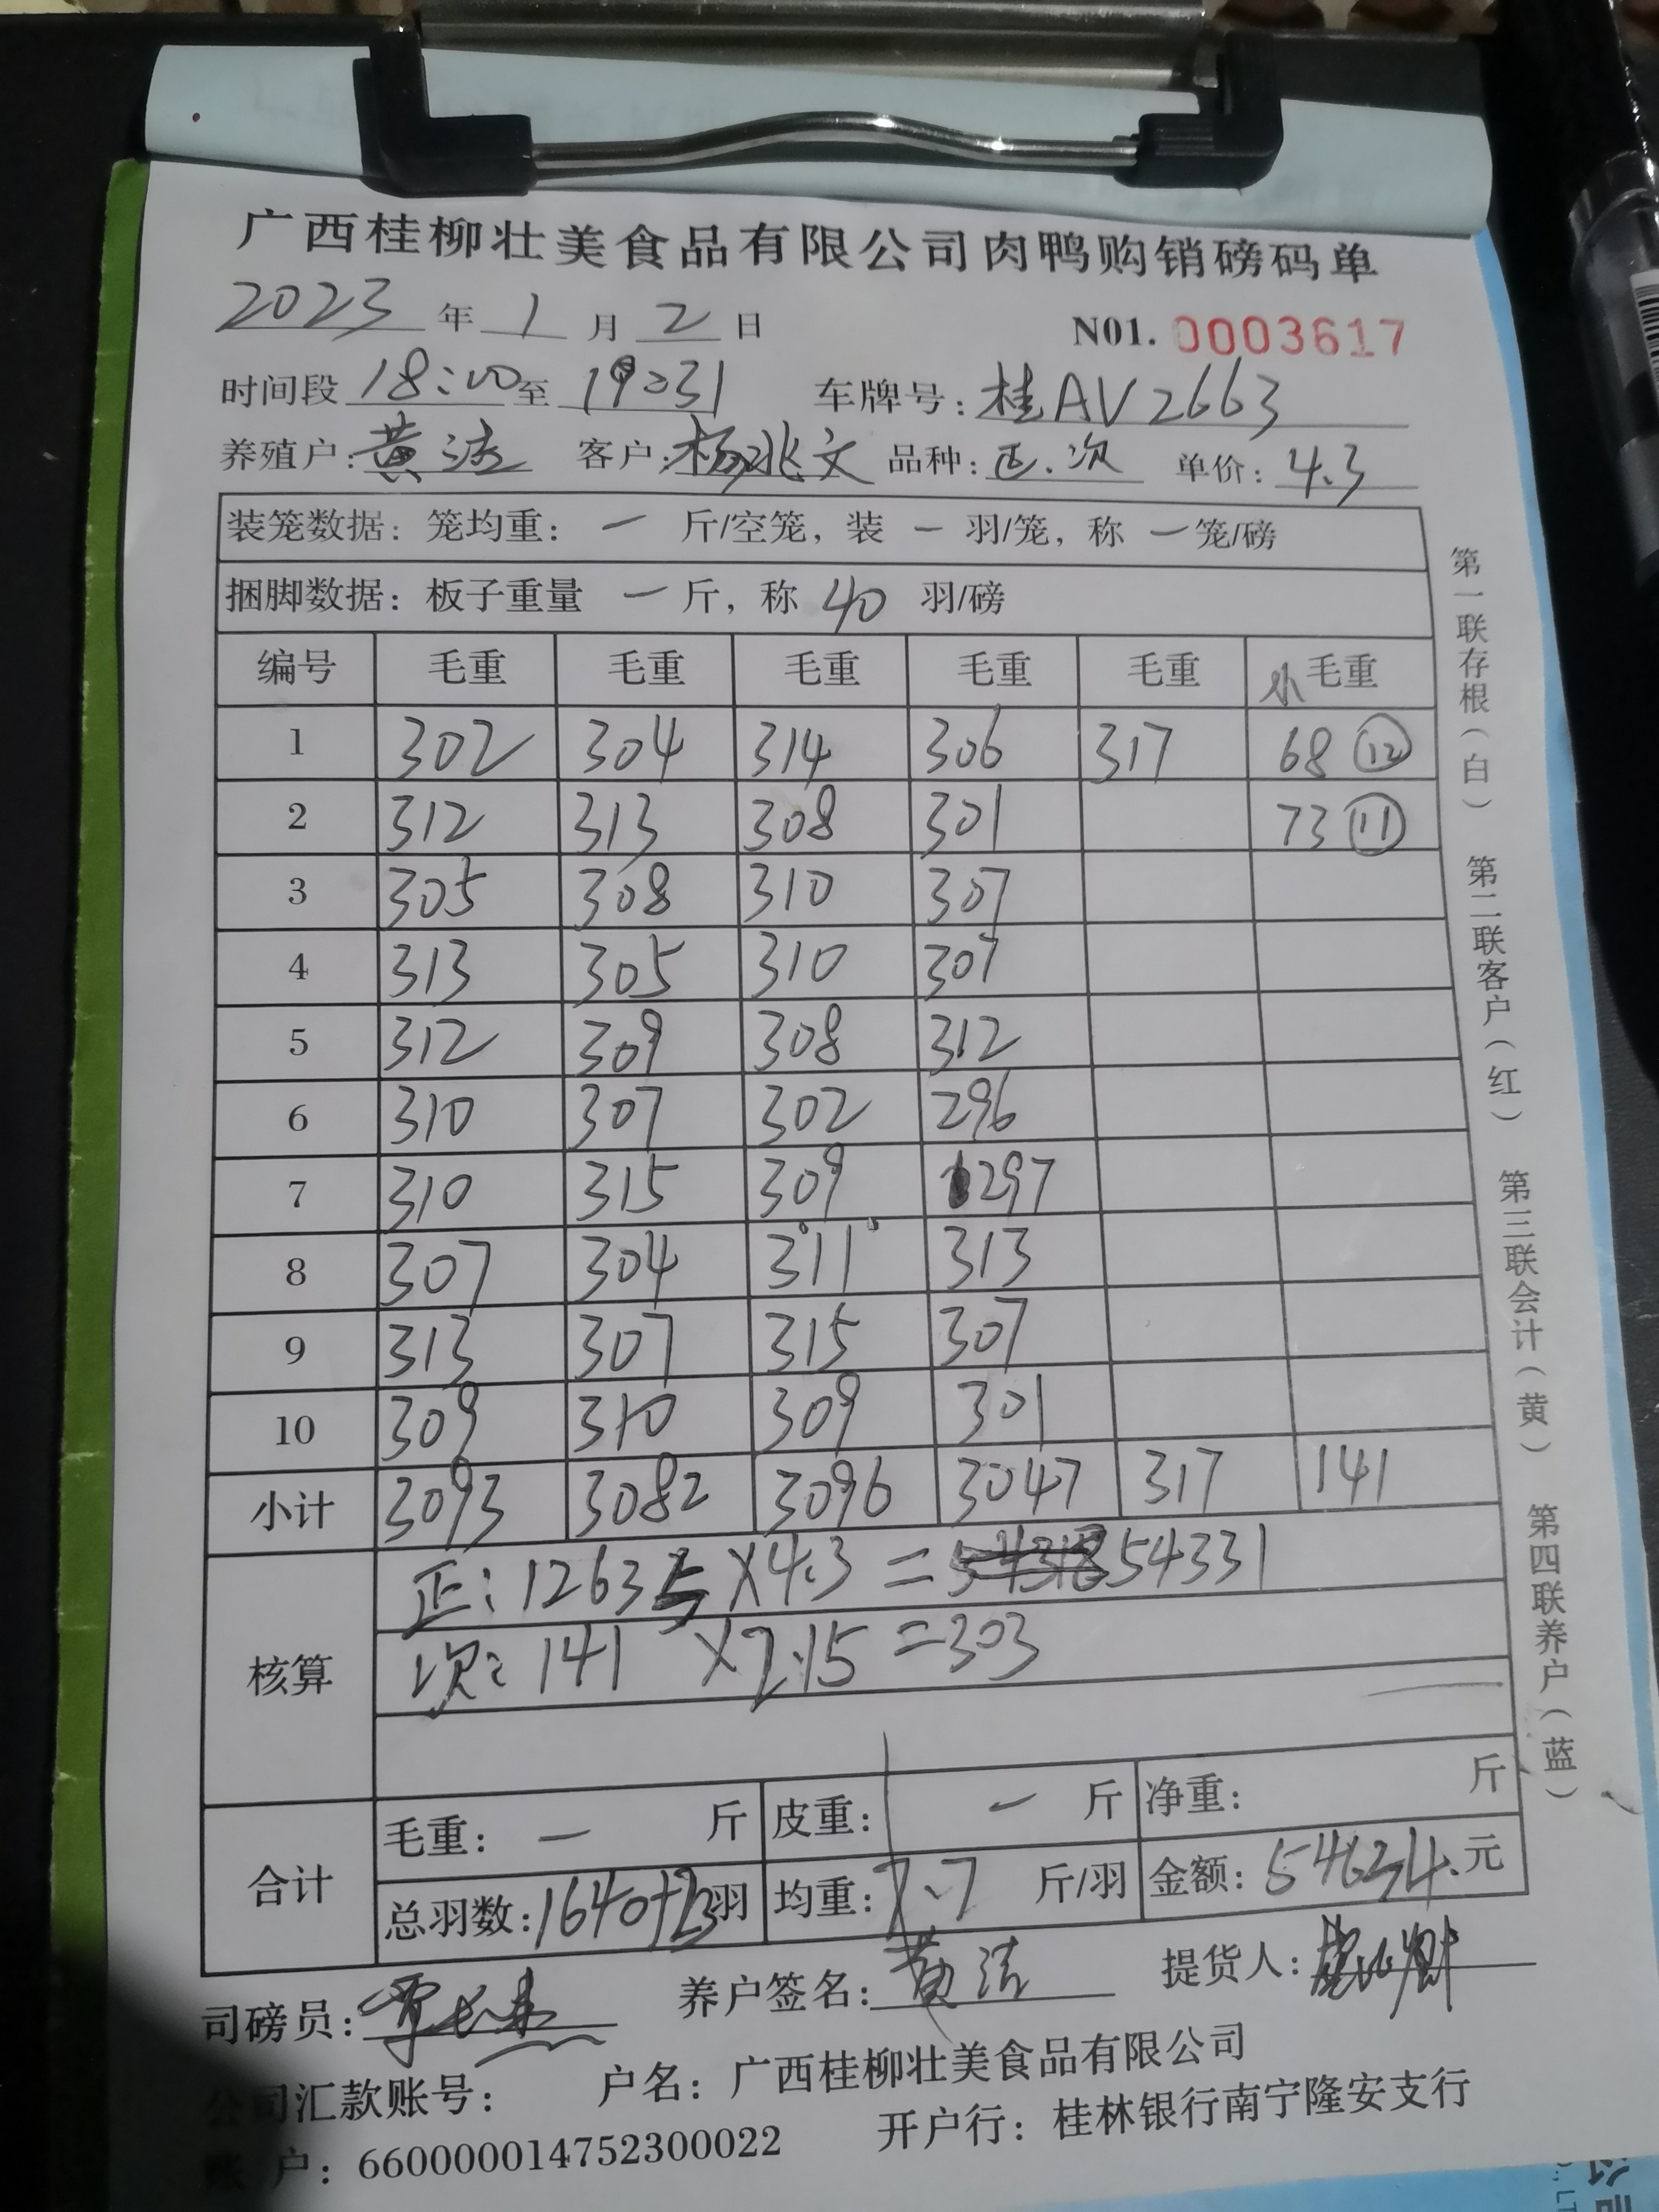 广西桂柳壮美食品有限公司肉鸭购销磅码单
2023 年 1 月 2 日 N01. 0003617
时间段 18:00 至 19:31 车牌号: 桂AV2663
养殖户: 黄洁 客户: 杨兆文 品种: 正.次 单价: 4.3
装笼数据: 笼均重: 一 斤/空笼, 装 一 羽/笼, 称 一 笼/磅
捆脚数据: 板子重量 一 斤, 称 40 羽/磅
编号 毛重 毛重 毛重 毛重 毛重 小 毛重
1 302 304 314 306 317 68 ⑫
2 312 313 308 301 73 ⑪
3 305 308 310 307
4 313 305 310 307
5 312 309 308 312
6 310 307 302 296
7 310 315 309 297
8 307 304 311 313
9 313 307 315 307
10 309 310 309 301
小计 3093 3082 3096 3047 317 141
核算 正: 12635 X4.3 = 54331
次: 141 X2.15 =303
合计 毛重: 一 斤 皮重: 一 斤 净重: 斤
总羽数: 1640+23 羽 均重: 7.7 斤/羽 金额: 54634. 元
司磅员: 养户签名: 黄洁 提货人:
公司汇款账号: 户名: 广西桂柳壮美食品有限公司
账 户: 660000014752300022 开户行: 桂林银行南宁隆安支行
第一联存根(白) 第二联客户(红) 第三联会计(黄) 第四联养户(蓝)